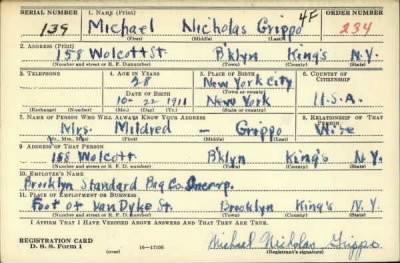 SERIAL NUMBER 1. NAME (Print) ORDER NUMBER
139 Michael Nicholas Grippo 4F 234
(First) (Middle) (Last)
2. ADDRESS (Print)
158 Wolcott St. B'klyn King's N.Y.
(Number and street or R. F. D. number) (Town) (County) (State)
3. TELEPHONE 4. AGE IN YEARS 5. PLACE OF BIRTH 6. COUNTRY OF CITIZENSHIP
28 New York City
DATE OF BIRTH (Town or county)
10-22-1911 New York U.S.A.
(Exchange) (Number) (Mo.) (Day) (Yr.) (State or country)
7. NAME OF PERSON WHO WILL ALWAYS KNOW YOUR ADDRESS 8. RELATIONSHIP OF THAT PERSON
Mrs. Mildred - Grippo Wife
(Mr., Mrs., Miss) (First) (Middle) (Last)
9. ADDRESS OF THAT PERSON
158 Wolcott B'klyn King's N.Y.
(Number and street or R. F. D. number) (Town) (County) (State)
10. EMPLOYER'S NAME
Brooklyn Standard Bag Co. Incorp.
11. PLACE OF EMPLOYMENT OR BUSINESS
Foot of Van Dyke St. Brooklyn King's N.Y.
(Number and street or R. F. D. number) (Town) (County) (State)
I AFFIRM THAT I HAVE VERIFIED ABOVE ANSWERS AND THAT THEY ARE TRUE.
REGISTRATION CARD
D. S. S. Form 1 (over) 16—17106
Michael Nicholas Grippo
(Registrant's signature)